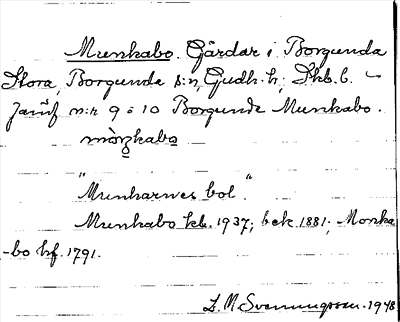 Munkabo. Gårdar i Borgunda
Stora, Borgunda s:n, Gudh. h., Skb. l. –
Jämf n:r 9 o 10 Borgunda Munkabo.
"Munkarnes bol"
Munkabo kb. 1937; bek. 1881; Monka
-bo hf. 1791.
L. M. Svenungsson. 1948